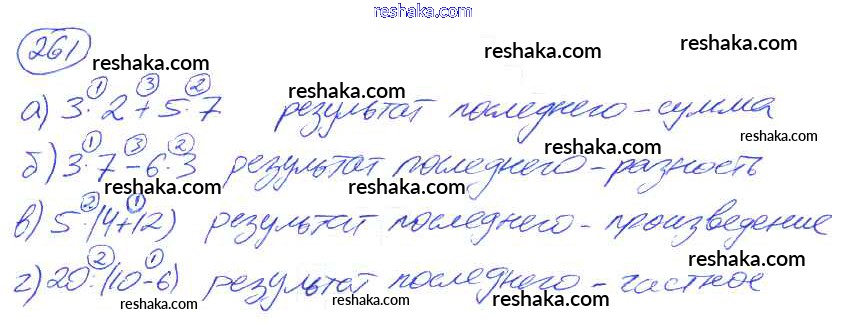 reshaka.com
261
reshaka.com reshaka.com reshaka.com
reshaka.com
① ③ ②
а) 3 · 2 + 5 · 7 результат последнего – сумма
reshaka.com reshaka.com
① ③ ②
б) 3 · 7 – 6 · 3 результат последнего – разность
reshaka.com reshaka.com
② ①
в) 5 · (4+12) результат последнего – произведение
reshaka.com reshaka.com
② ①
г) 20 : (10–6) результат последнего – частное
reshaka.com reshaka.com reshaka.com